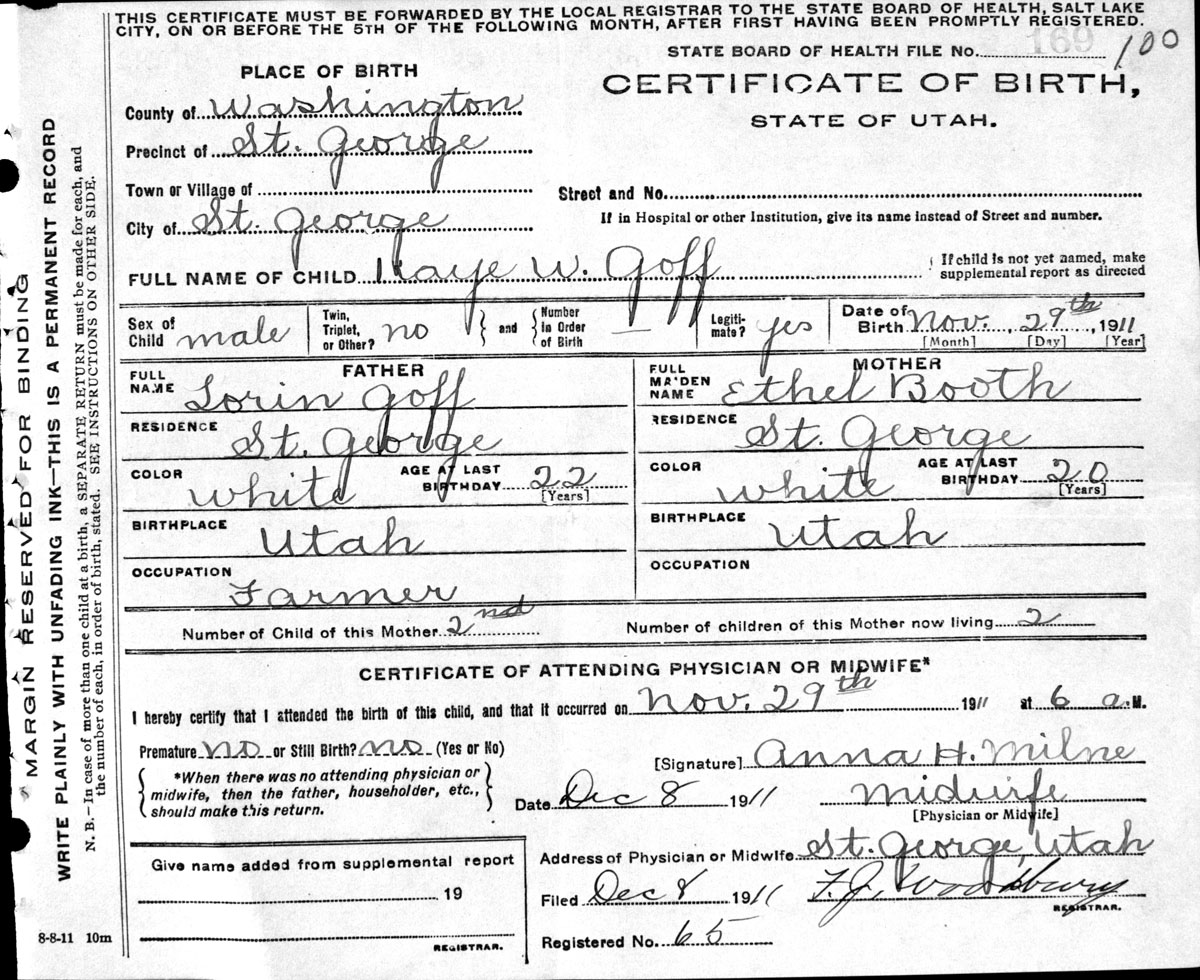 THIS CERTIFICATE MUST BE FORWARDED BY THE LOCAL REGISTRAR TO THE STATE BOARD OF HEALTH, SALT LAKE
CITY, ON OR BEFORE THE 5TH OF THE FOLLOWING MONTH, AFTER FIRST HAVING BEEN PROMPTLY REGISTERED.
STATE BOARD OF HEALTH FILE No. 169 100
PLACE OF BIRTH
CERTIFICATE OF BIRTH,
STATE OF UTAH.
County of Washington
Precinct of St. George
Town or Village of
Street and No.
City of St. George
If in Hospital or other Institution, give its name instead of Street and number.
FULL NAME OF CHILD Kaye W. Goff
If child is not yet named, make
supplemental report as directed
Sex of Child male
Twin, Triplet, or Other? no
and
Number in Order of Birth —
Legitimate? yes
Date of Birth Nov. 29th, 1911
[Month] [Day] [Year]
FATHER
FULL NAME Lorin Goff
RESIDENCE St. George
COLOR White
AGE AT LAST BIRTHDAY 22
[Years]
BIRTHPLACE Utah
OCCUPATION Farmer
MOTHER
FULL MAIDEN NAME Ethel Booth
RESIDENCE St. George
COLOR White
AGE AT LAST BIRTHDAY 20
[Years]
BIRTHPLACE Utah
OCCUPATION
Number of Child of this Mother 2nd
Number of children of this Mother now living 2
CERTIFICATE OF ATTENDING PHYSICIAN OR MIDWIFE*
I hereby certify that I attended the birth of this child, and that it occurred on Nov. 29th 1911 at 6 a.M.
Premature no or Still Birth? no (Yes or No)
*When there was no attending physician or
midwife, then the father, householder, etc.,
should make this return.
[Signature] Anna H. Milne
Date Dec 8 1911
Midwife
[Physician or Midwife]
Give name added from supplemental report
19
REGISTRAR.
Address of Physician or Midwife St. George, Utah
Filed Dec 8 1911 F. J. Woodbury
REGISTRAR.
Registered No. 65
8-8-11 10m
MARGIN RESERVED FOR BINDING
WRITE PLAINLY WITH UNFADING INK—THIS IS A PERMANENT RECORD
N. B.—In case of more than one child at a birth, a SEPARATE RETURN must be made for each, and
the number of each, in order of birth, stated. SEE INSTRUCTIONS ON OTHER SIDE.